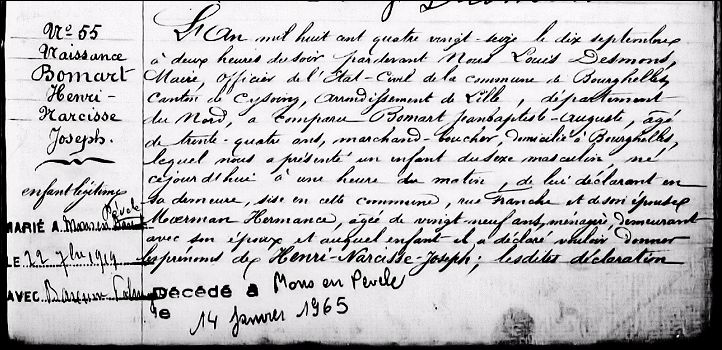 Nº 55
Naissance
Bomart
Henri-
Narcisse
Joseph.
enfant légitime
MARIÉ A Mons en Pévèle
LE 22 7bre 1919
AVEC
L'An mil huit cent quatre vingt-seize le dix septembre
à deux heures du soir par devant Nous Louis Desmons,
Maire Officier de l'Etat-Civil de la commune de Bourghelles,
Canton de Cysoing, Arrondissement de Lille, département
du Nord, a comparu Bomart Jean baptiste-Auguste, agé
de trente-quatre ans, marchand-boucher, domicilié à Bourghelles,
lequel nous a présenté un enfant du sexe masculin né
cejourd'hui à une heure du matin, de lui déclarant en
sa demeure, sise en cette commune, rue Franche et de son épouse
Hermance, agée de vingt-neuf ans, ménagère, demeurant
avec son époux et auquel enfant il a déclaré vouloir donner
les prénoms de Henri-Narcisse-Joseph; lesdites déclaration
Décédé à Mons en Pevele
le 14 Janvier 1965